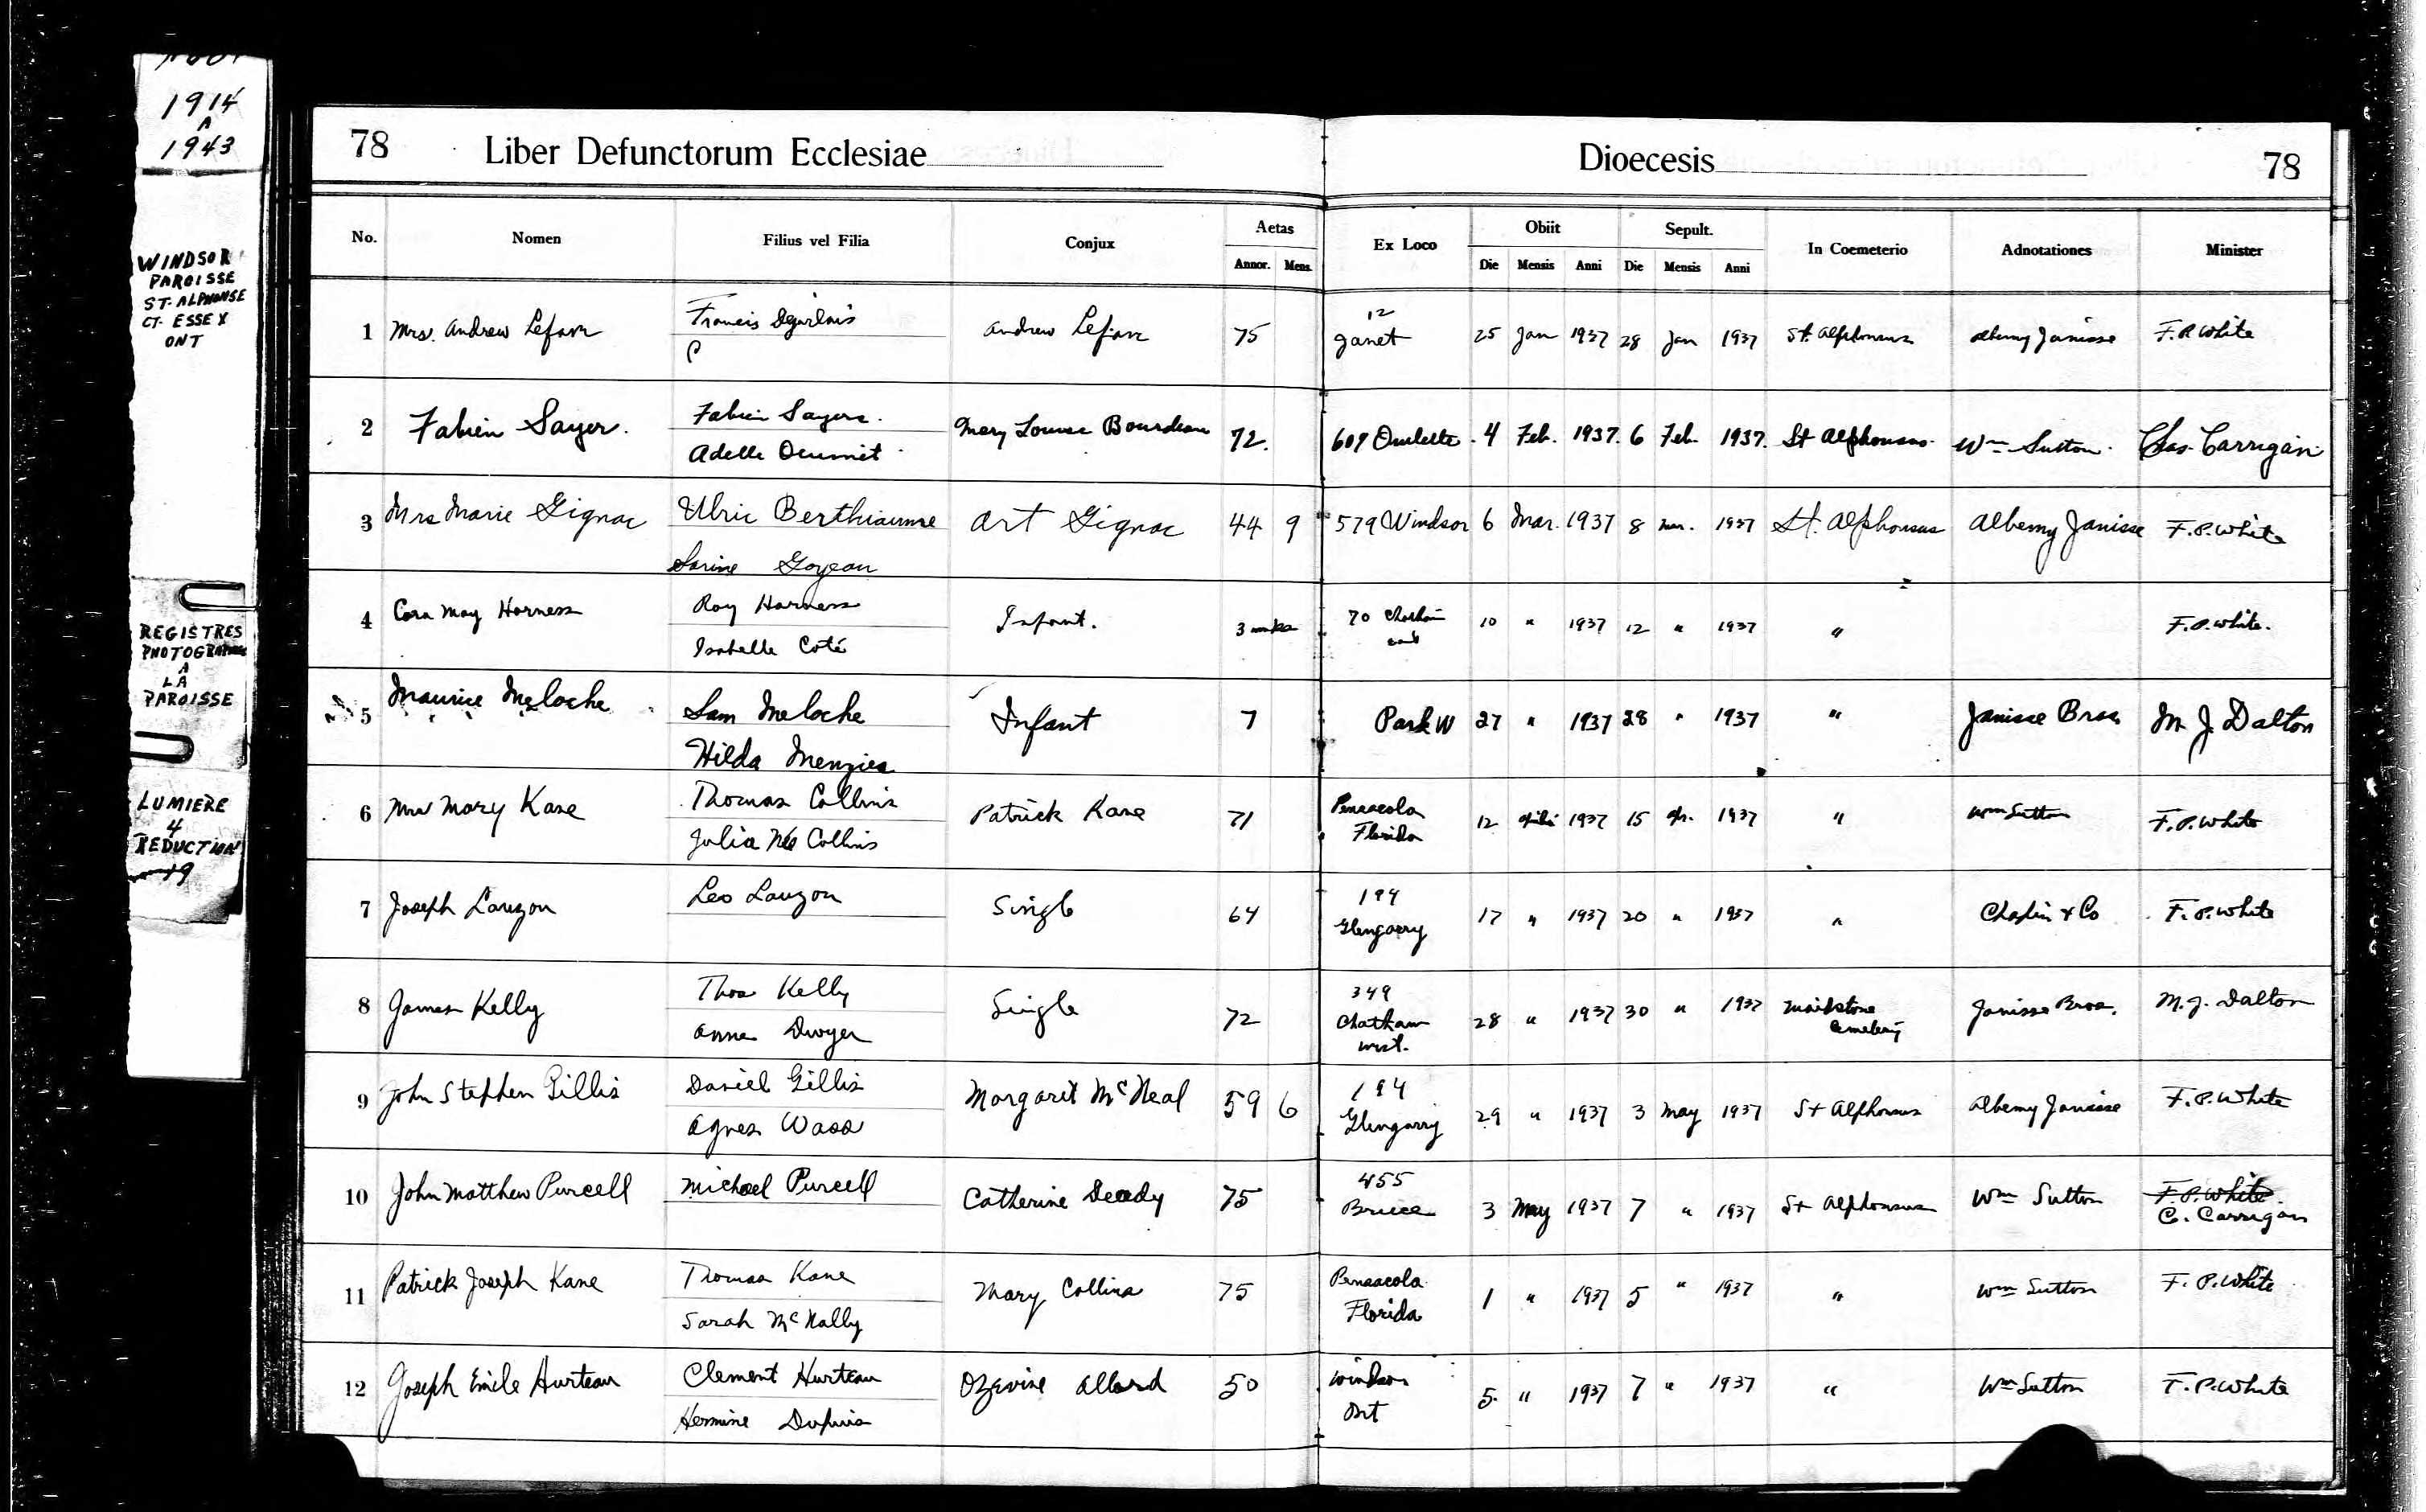 1914
A
1943
WINDSOR
PAROISSE
ST. ALPHONSE
CT. ESSEX
ONT
REGISTRES
PHOTOGRAPHIÉS
A
LA
PAROISSE
LUMIERE
4
REDUCTION
19
78 Liber Defunctorum Ecclesiae Dioecesis 78
No. Nomen Filius vel Filia Conjux Aetas Ex Loco Obiit Sepult. In Coemeterio Adnotationes Minister
Annor. Mens. Die Mensis Anni Die Mensis Anni
1 Mrs. Andrew Lefave Francis Andrew Lefave 75 12 Janet 25 Jan 1937 28 Jan 1937 St. Alphonsus Albemy Janisse F. P. White
2 Fabien Sayer. Fabien Sayers. Mary Louise Bourdeau 72. 609 Ouelette 4 Feb. 1937. 6 Feb. 1937. St Alphonsus Wm Sutton. Chas. Carrigan
Adelle Oeumit
3 Mrs Marie Gignac Ulric Berthiaume Art Gignac 44 9 579 Windsor 6 Mar. 1937 8 Mar. 1937 St. Alphonsus Albemy Janisse F. P. White
Goyeau
4 Cora May Harness Roy Harness Infant. 3 wks 70 Chatham east 10 " 1937 12 " 1937 " F. P. White.
Isabelle Coté
5 Maurice Meloche Sam Meloche Infant 7 Park W 27 " 1937 28 " 1937 " Janisse Bros M. J. Dalton
Hilda Menzies
6 Mrs Mary Kane Thomas Collins Patrick Kane 71 Pensacola Florida 12 1937 15 Ap. 1937 " Wm Sutton F. P. White
Julia Collins
7 Joseph Lauzon Leo Lauzon Single 64 194 Glengarry 17 " 1937 20 " 1937 " Chapin & Co F. P. White
8 James Kelly Thos Kelly Single 72 349 Chatham west. 28 " 1937 30 " 1937 Maidstone Cemetery Janisse Bros. M. J. Dalton
Anne Dwyer
9 John Stephen Gillis Daniel Gillis Margaret McNeal 59 6 194 Glengarry 29 " 1937 3 May 1937 St Alphonsus Albemy Janisse F. P. White
Agnes Wass
10 John Matthew Purcell Michael Purcell Catherine Deady 75 455 Bruce 3 May 1937 7 " 1937 St Alphonsus Wm Sutton F. P. White.
C. Carrigan
11 Patrick Joseph Kane Thomas Kane Mary Collins 75 Pensacola Florida 1 " 1937 5 " 1937 " Wm Sutton F. P. White
Sarah McNally
12 Joseph Emile Hurteau Clement Hurteau Ozevine Allard 50 Windsor Ont 5. " 1937 7 " 1937 " Wm Sutton F. P. White
Hermine Dupuis